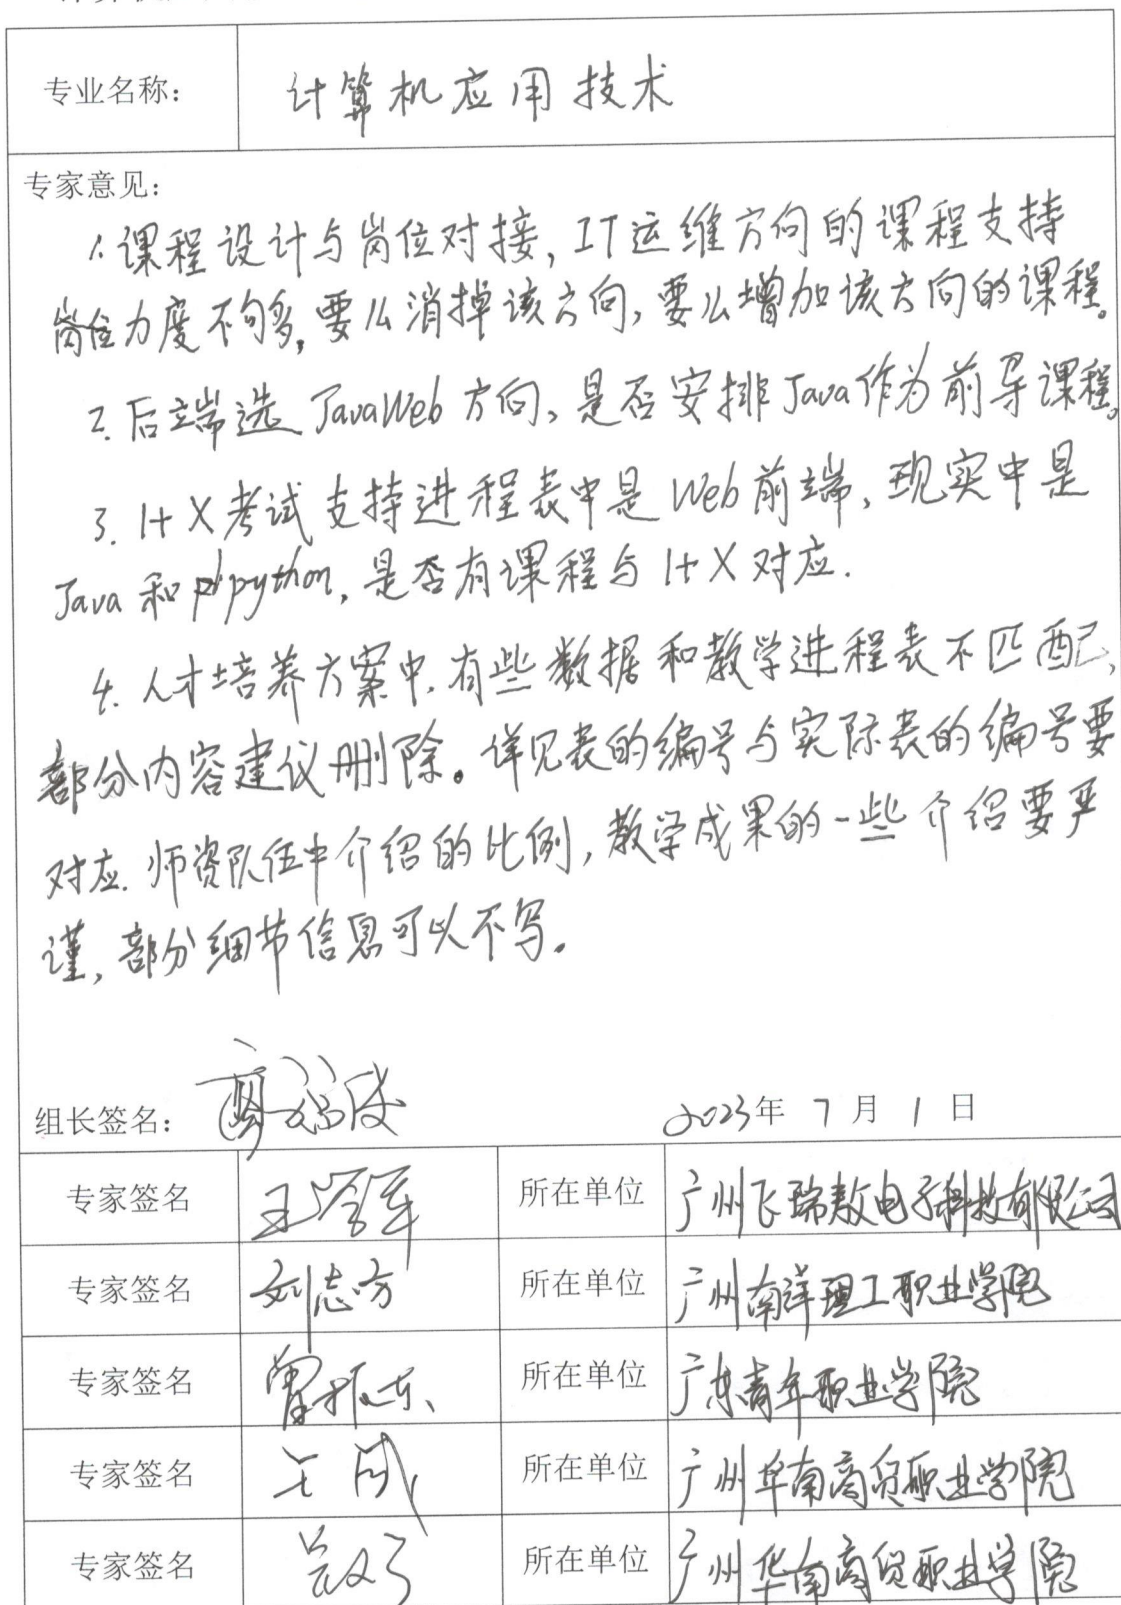 专业名称： 计算机应用技术
专家意见：
1.课程设计与岗位对接，IT运维方向的课程支持
岗位力度不够多，要么消掉该方向，要么增加该方向的课程。
2.后端选JavaWeb方向，是否安排Java作为前导课程。
3.1+X考试支持进程表中是Web前端，现实中是
Java和python，是否有课程与1+X对应.
4.人才培养方案中，有些数据和教学进程表不匹配，
部分内容建议删除。详见表的编号与实际表的编号要
对应.师资队伍中介绍的比例，教学成果的一些介绍要严
谨，部分细节信息可以不写。
组长签名： 2023年 7月 1日
专家签名 王学军 所在单位 广州飞瑞敖电子科技有限公司
专家签名 刘志方 所在单位 广州南洋理工职业学院
专家签名 曾振东 所在单位 广东青年职业学院
专家签名 王成 所在单位 广州华南商贸职业学院
专家签名 所在单位 广州华南商贸职业学院